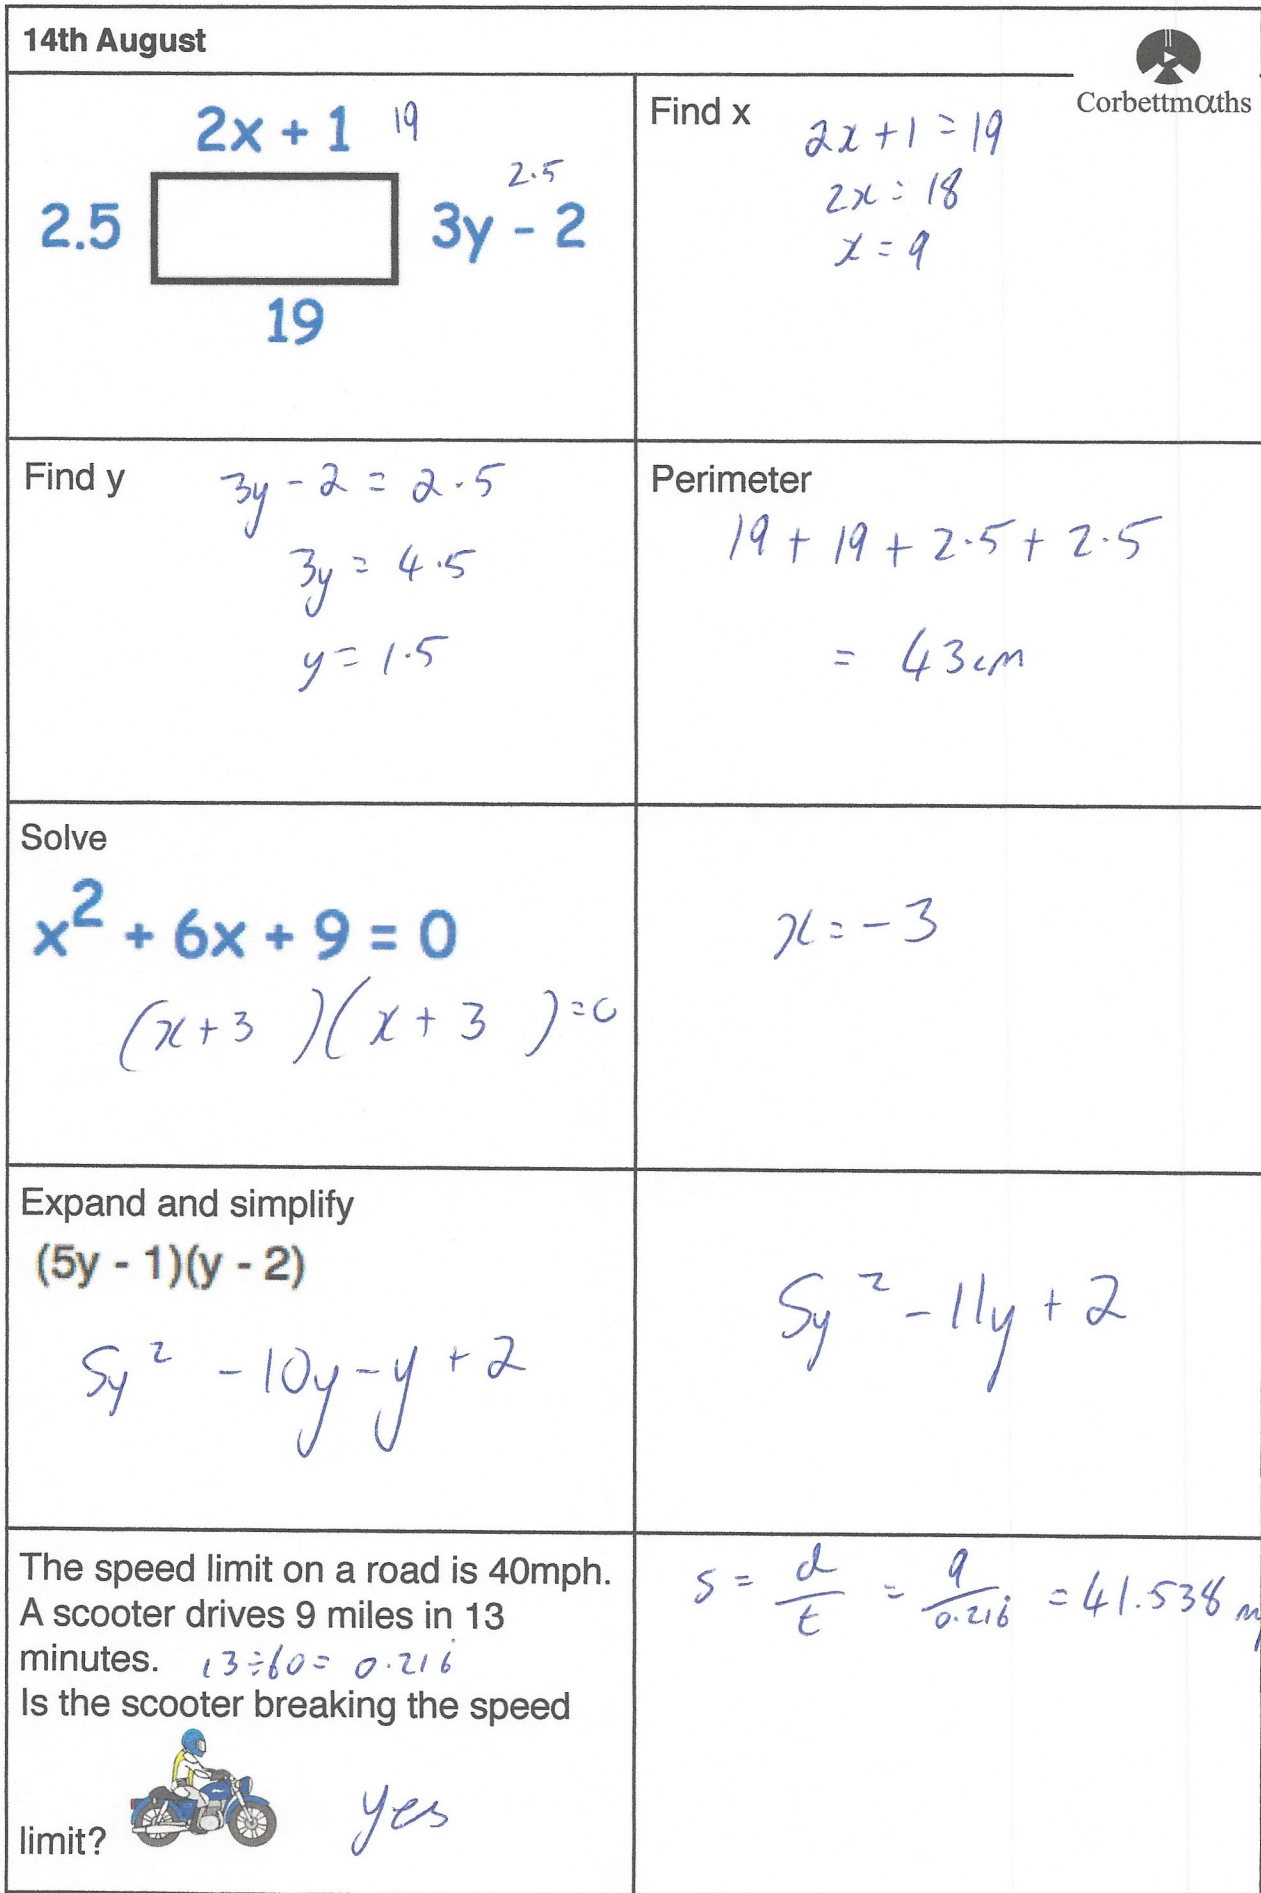 14th August
Corbettmαths
2x + 1 19
2.5
2.5 3y - 2
19
Find x
2x + 1 = 19
2x = 18
x = 9
Find y
3y - 2 = 2.5
3y = 4.5
y = 1.5
Perimeter
19 + 19 + 2.5 + 2.5
= 43cm
Solve
x² + 6x + 9 = 0
(x + 3 )(x + 3 ) = 0
x = -3
Expand and simplify
(5y - 1)(y - 2)
5y² - 10y - y + 2
5y² - 11y + 2
The speed limit on a road is 40mph.
A scooter drives 9 miles in 13
minutes. 13÷60= 0.216̇
Is the scooter breaking the speed
limit? yes
s = d/t = 9/0.216̇ = 41.538 m